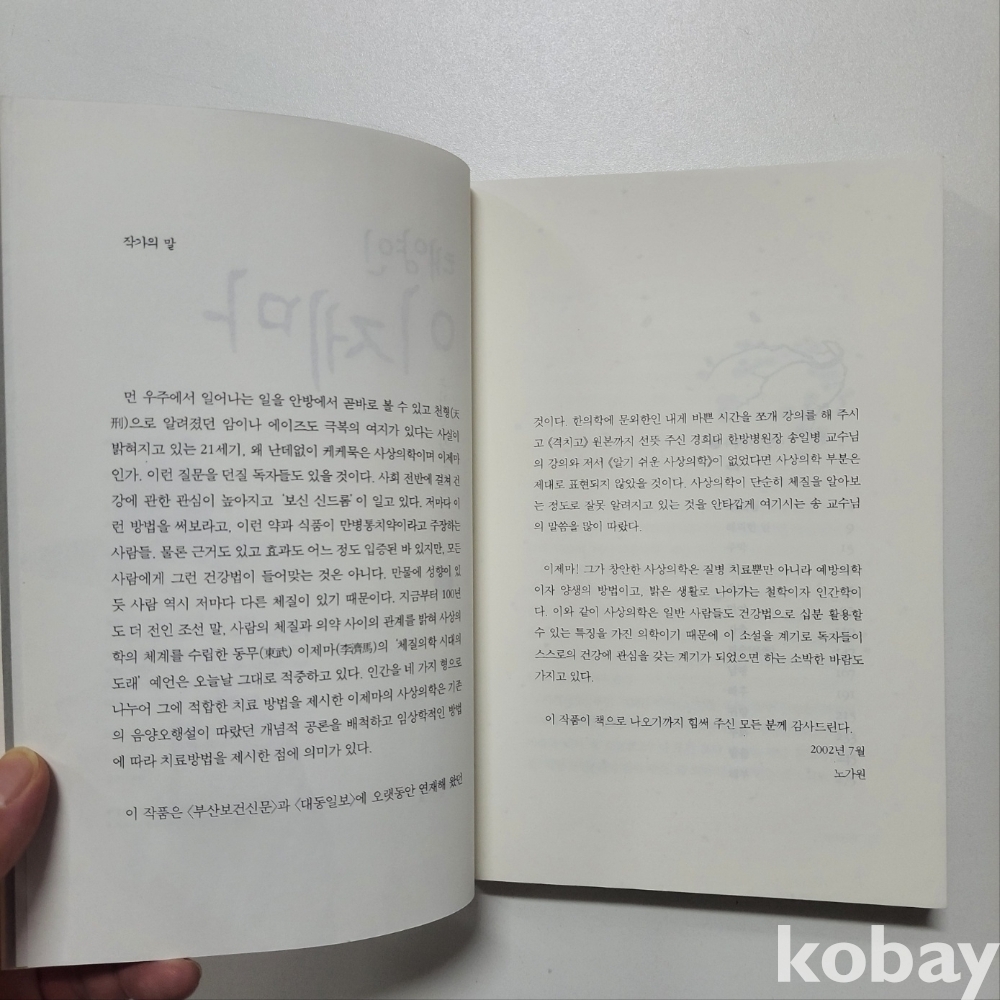 작가의 말
먼 우주에서 일어나는 일을 안방에서 곧바로 볼 수 있고 천형(天
刑)으로 알려졌던 암이나 에이즈도 극복의 여지가 있다는 사실이
밝혀지고 있는 21세기, 왜 난데없이 케케묵은 사상의학이며 이제마
인가. 이런 질문을 던질 독자들도 있을 것이다. 사회 전반에 걸쳐 건
강에 관한 관심이 높아지고 '보신 신드롬'이 일고 있다. 저마다 이
런 방법을 써보라고, 이런 약과 식품이 만병통치약이라고 주장하는
사람들. 물론 근거도 있고 효과도 어느 정도 입증된 바 있지만, 모든
사람에게 그런 건강법이 들어맞는 것은 아니다. 만물에 성향이 있
듯 사람 역시 저마다 다른 체질이 있기 때문이다. 지금부터 100년
도 더 전인 조선 말, 사람의 체질과 의약 사이의 관계를 밝혀 사상의
학의 체계를 수립한 동무(東武) 이제마(李濟馬)의 '체질의학 시대의
도래' 예언은 오늘날 그대로 적중하고 있다. 인간을 네 가지 형으로
나누어 그에 적합한 치료 방법을 제시한 이제마의 사상의학은 기존
의 음양오행설이 따랐던 개념적 공론을 배척하고 임상학적인 방법
에 따라 치료방법을 제시한 점에 의미가 있다.
이 작품은 〈부산보건신문〉과 〈대동일보〉에 오랫동안 연재해 왔던
것이다. 한의학에 문외한인 내게 바쁜 시간을 쪼개 강의를 해 주시
고 《격치고》 원본까지 선뜻 주신 경희대 한방병원장 송일병 교수님
의 강의와 저서 《알기 쉬운 사상의학》이 없었다면 사상의학 부분은
제대로 표현되지 않았을 것이다. 사상의학이 단순히 체질을 알아보
는 정도로 잘못 알려지고 있는 것을 안타깝게 여기시는 송 교수님
의 말씀을 많이 따랐다.
이제마! 그가 창안한 사상의학은 질병 치료뿐만 아니라 예방의학
이자 양생의 방법이고, 밝은 생활로 나아가는 철학이자 인간학이
다. 이와 같이 사상의학은 일반 사람들도 건강법으로 십분 활용할
수 있는 특징을 가진 의학이기 때문에 이 소설을 계기로 독자들이
스스로의 건강에 관심을 갖는 계기가 되었으면 하는 소박한 바람도
가지고 있다.
이 작품이 책으로 나오기까지 힘써 주신 모든 분께 감사드린다.
2002년 7월
노가원
kobay